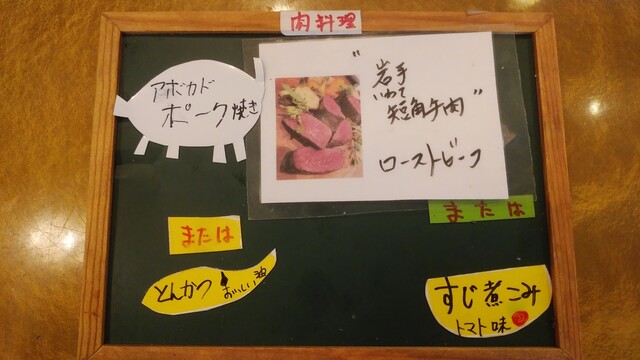 肉料理
アボカド
ポーク焼き
"岩手
いわて
短角牛肉"
ローストビーフ
または
または
とんかつ
おいしい油
すじ煮こみ
トマト味